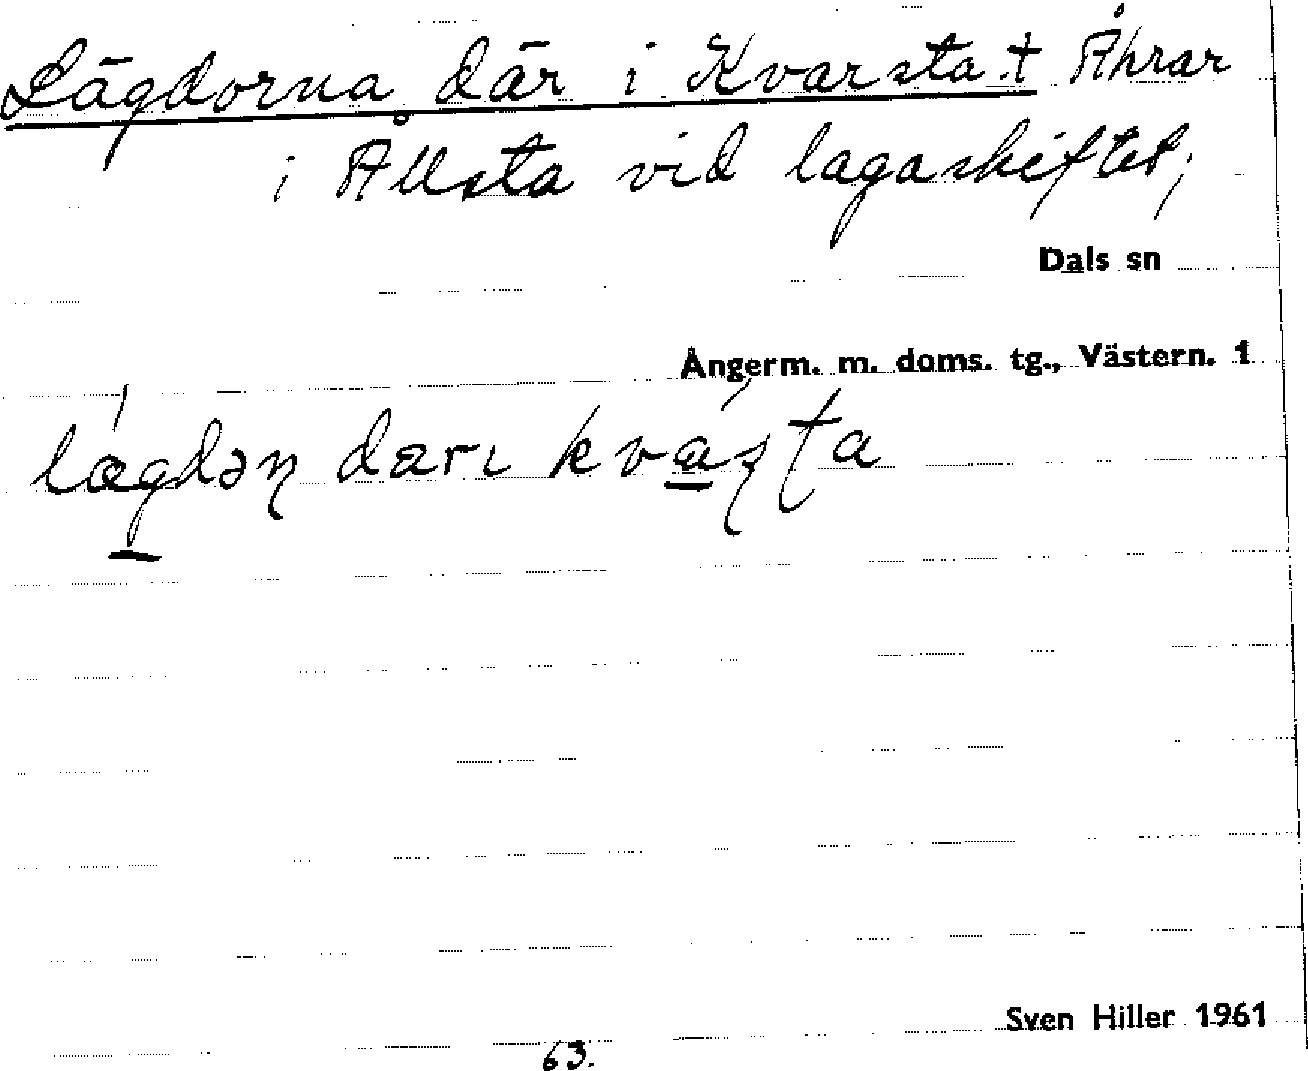 Lägdorna där i Kvarsta † Åkrar
i Ållsta vid lagaskiftet;
Dals sn
Ångerm. m. doms. tg., Västern. 1
lægdəɳ dærɪ kvaʂʈa
Sven Hiller 1961
63.